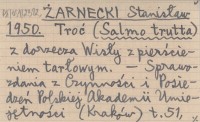 ŻARNECKI Stanisław
1950. Troć (Salmo trutta)
z dorzecza Wisły z pierście-
niem tarłowym. — Sprawo-
zdania z Czynności i Posie-
dzeń Polskiej Akademii Umie-
jętności (Kraków) t. 51,